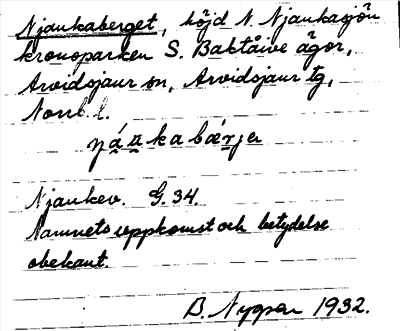 Njaukaberget, höjd N. Njaukasjön
kronoparken S. Baktåive ägor,
Arvidsjaur sn, Arvidsjaur tg,
Norrb. l.
Njaukev. G. 34.
Namnets uppkomst och betydelse
obekant.
B. Nygren 1932.